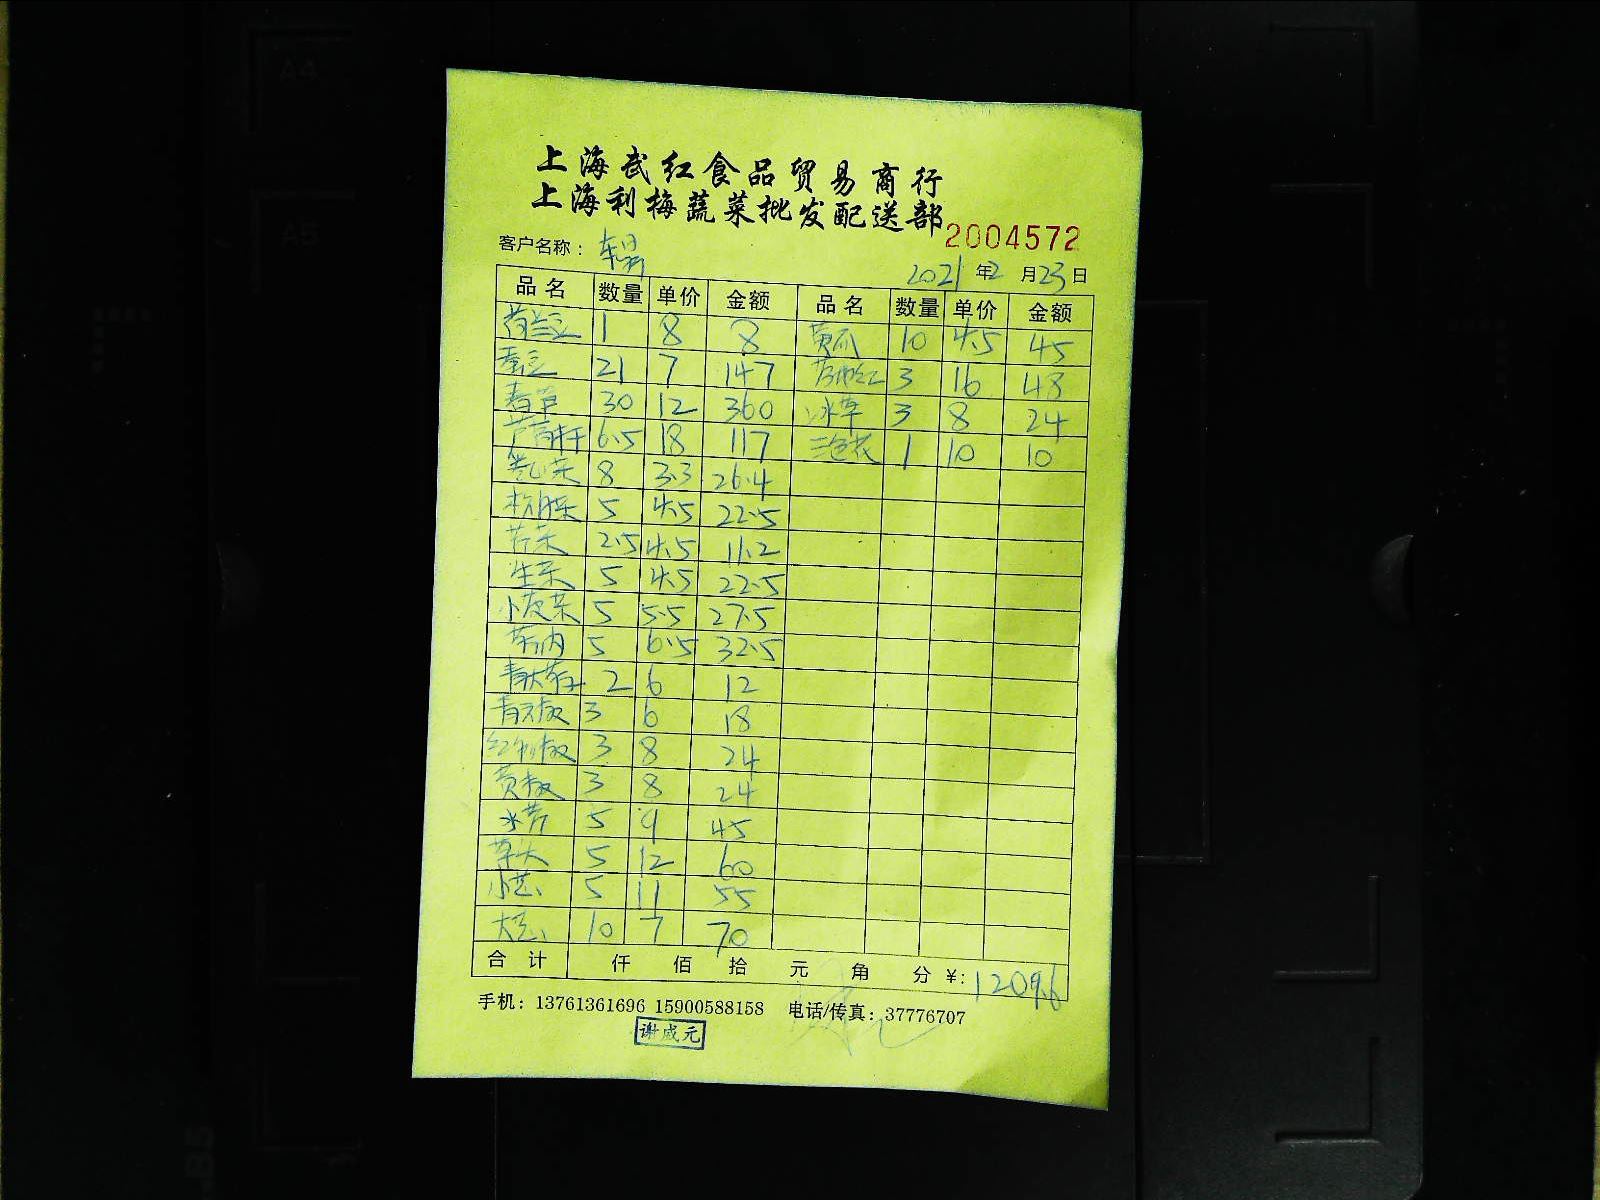 上海武红食品贸易商行
上海利梅蔬菜批发配送部
2004572
客户名称：
2021年2月23日
品名 数量 单价 金额 品名 数量 单价 金额
荷兰豆 1 8 8 黄瓜 10 4.5 45
蚕豆 21 7 147 3 16 48
春笋 30 12 360 冰草 3 8 24
6.5 18 117 三色花 1 10 10
卷心菜 8 3.3 26.4
5 4.5 22.5
芹菜 2.5 4.5 11.2
生菜 5 4.5 22.5
小菠菜 5 5.5 27.5
5 6.5 32.5
2 6 12
3 6 18
3 8 24
黄椒 3 8 24
水芹 5 9 45
草头 5 12 60
小葱 5 11 55
大葱 10 7 70
合计 仟 佰 拾 元 角 分 ¥: 1209.6
手机：13761361696 15900588158 电话/传真：37776707
谢成元